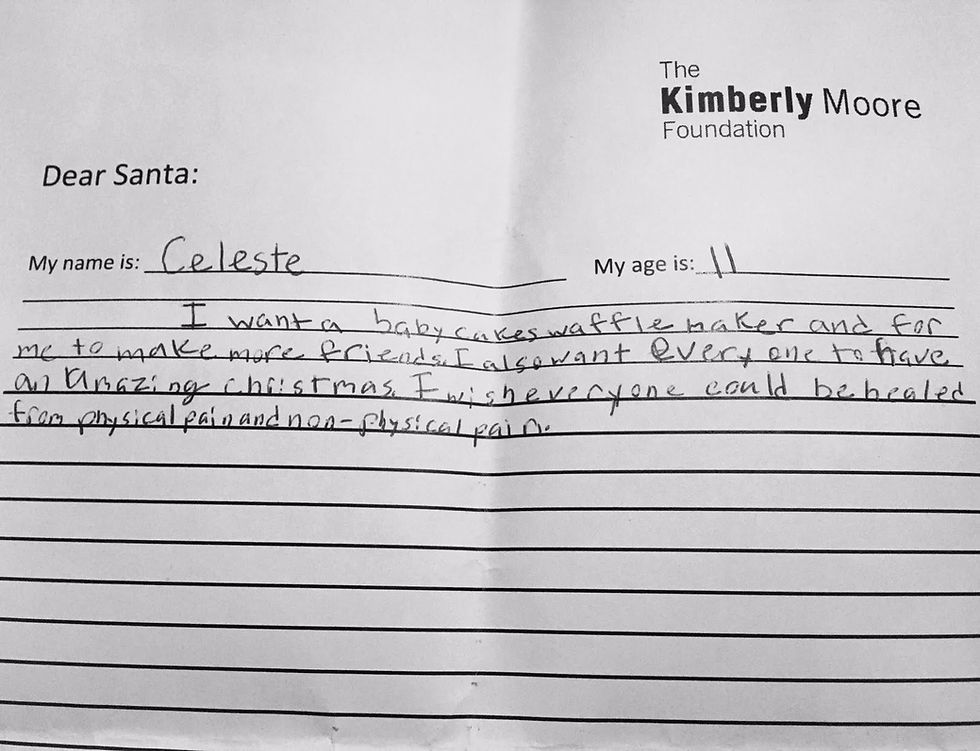 The
Kimberly Moore
Foundation
Dear Santa:
My name is: Celeste My age is: 11
I want a baby cakes waffle maker and for
me to make more friends. I also want every one to have
an amazing christmas. I wish everyone could be healed
from physical pain and non-physical pain.